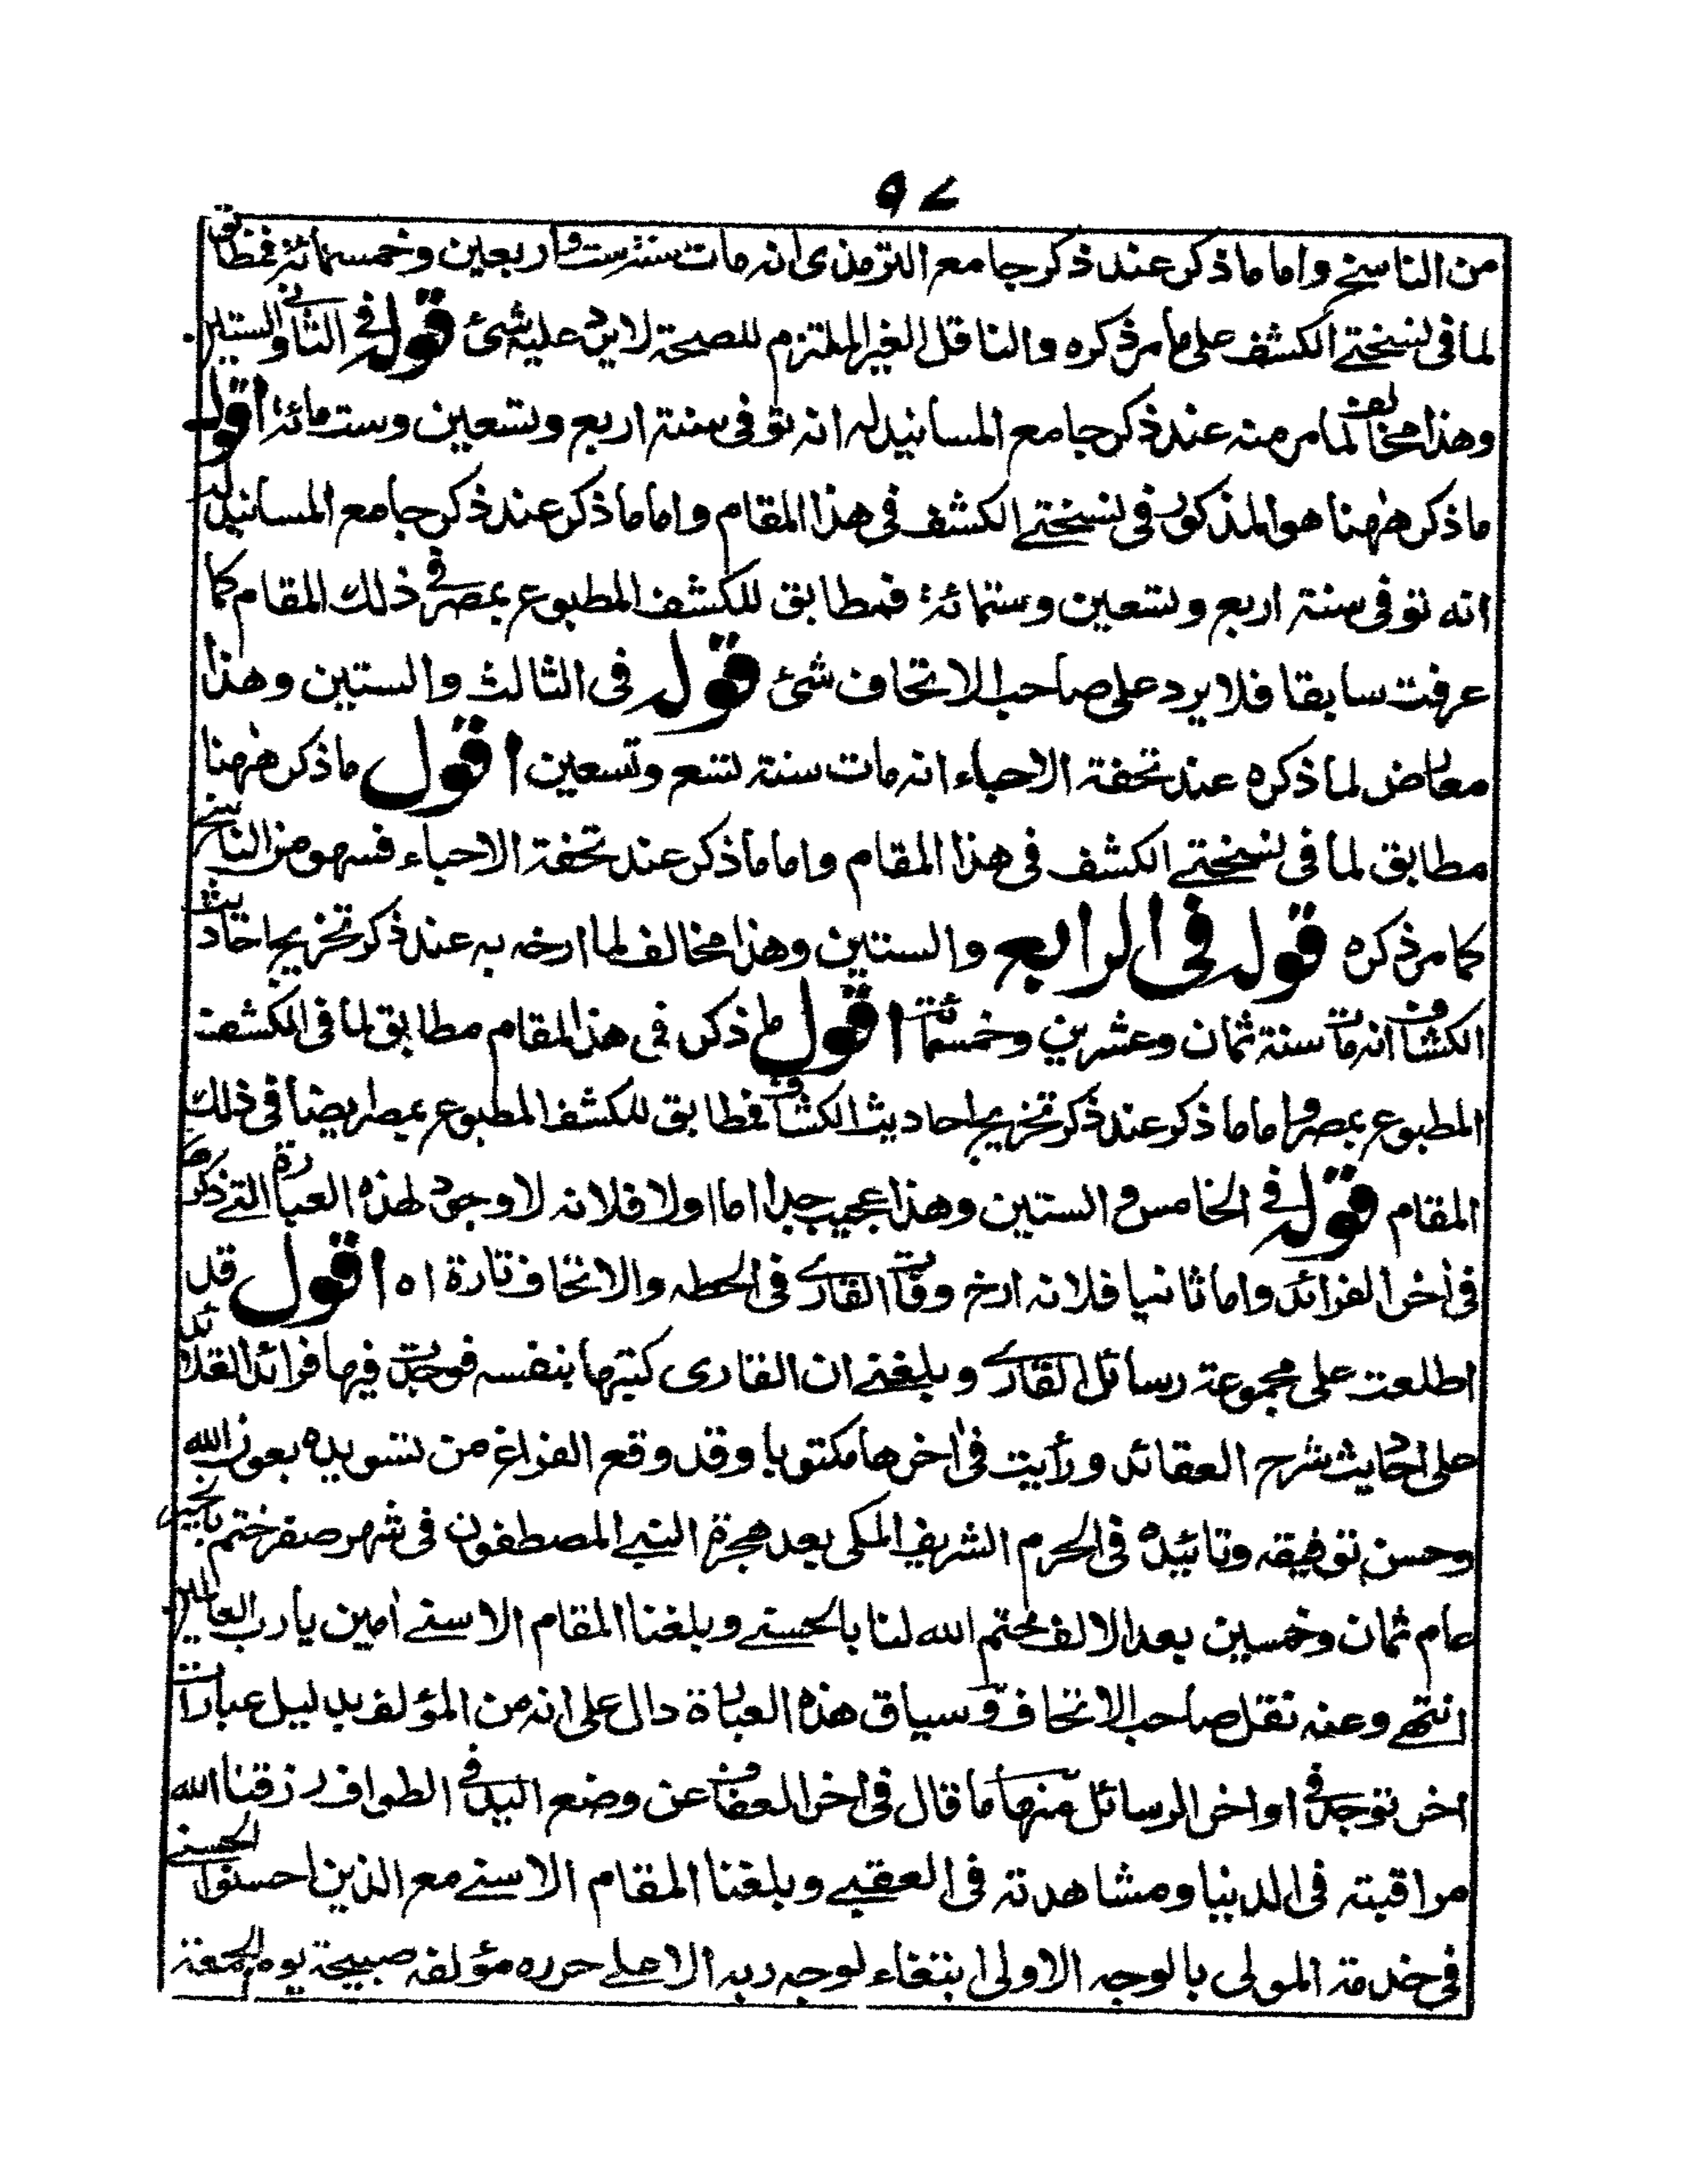 ۹۷
من الناسخ واما ما ذكر عند ذكر جامع الترمذى انه مات سنة ست واربعين وخمسمائة فمطابق
لما فى نسختى الكشف على ما مر ذكره والناقل الغير الملتزم للصحة لا يرد عليه شئ قوله فى الثانى والستين
وهذا مخالف لما مر منه عند ذكر جامع المسانيد له انه توفى سنة اربع وتسعين وست مائة اقول
ما ذكر ههنا هو المذكور فى نسختى الكشف فى هذا المقام واما ما ذكر عند ذكر جامع المسانيد له
انه توفى سنة اربع وتسعين وستمائة فمطابق للكشف المطبوع بمصر فى ذلك المقام كما
عرفت سابقا فلا يرد على صاحب الاتحاف شئ قوله فى الثالث والستين وهذا
معارض لما ذكره عند تحفة الاحباء انه مات سنة تسع وتسعين اقول ما ذكر ههنا
مطابق لما فى نسختى الكشف فى هذا المقام واما ما ذكر عند تحفة الاحباء فسهو من الناسخ
كما مر ذكره قوله فى الرابع والستين وهذا مخالف لما ارخه به عند ذكر تخريج احاديث
الكشاف انه مات سنة ثمان وعشرين وخمسمائة اقول ما ذكر فى هذا المقام مطابق لما فى الكشف
المطبوع بمصر واما ما ذكر عند ذكر تخريج احاديث الكشاف فمطابق للكشف المطبوع بمصر ايضا فى ذلك
المقام قوله فى الخامس والستين وهذا عجيب جدا اما اولا فلانه لا وجود لهذه العبارة التى ذكرها
فى اخر الفرائد واما ثانيا فلانه ارخ وفات القارى فى الحطه والاتحاف تارة اه اقول قد
اطلعت على مجموعة رسائل القارى وبلغنى ان القارى كتبها بنفسه فوجدت فيها فرائد القلائد
على احاديث شرح العقائد ورأيت فى اخرها مكتوبا وقد وقع الفراغ من تسويده بعون الله
وحسن توفيقه وتائيده فى الحرم الشريف المكى بعد هجرة النبى المصطفوى فى شهر صفر ختم بالخير
عام ثمان وخمسين بعد الالف ختم الله لنا بالحسنى وبلغنا المقام الاسنى امين يا رب العالمين
انتهى وعنه نقل صاحب الاتحاف وسياق هذه العبارة دال على انه من المؤلف بدليل عبارات
اخر توجد فى اواخر الرسائل منها ما قال فى اخر المعفات عن وضع اليد فى الطواف رزقنا الله
مراقبته فى الدنيا ومشاهدته فى العقبى وبلغنا المقام الاسنى مع الذين احسنوا الحسنى
فى خدمة المولى بالوجه الاولى ابتغاء لوجه ربه الاعلى حرره مؤلفه صبيحة يوم الجمعة